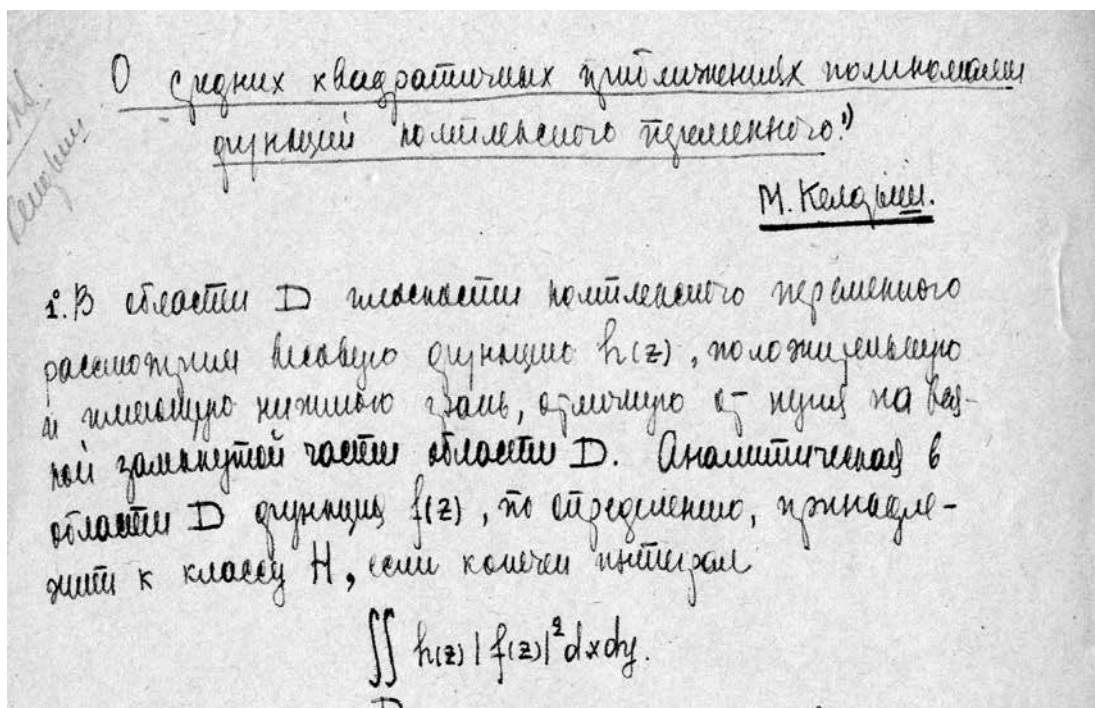 О средних квадратичных приближениях полиномами
функций комплексного переменного.¹⁾
М. Келдыш.
1°. В области D плоскости комплексного переменного
рассмотрим весовую функцию h(z), положительную
и имеющую нижнюю грань, отличную от нуля на вся-
кой замкнутой части области D. Аналитическая в
области D функция f(z), по определению, принадле-
жит к классу H, если конечен интеграл
∬ h(z) | f(z)|² dx dy.
D